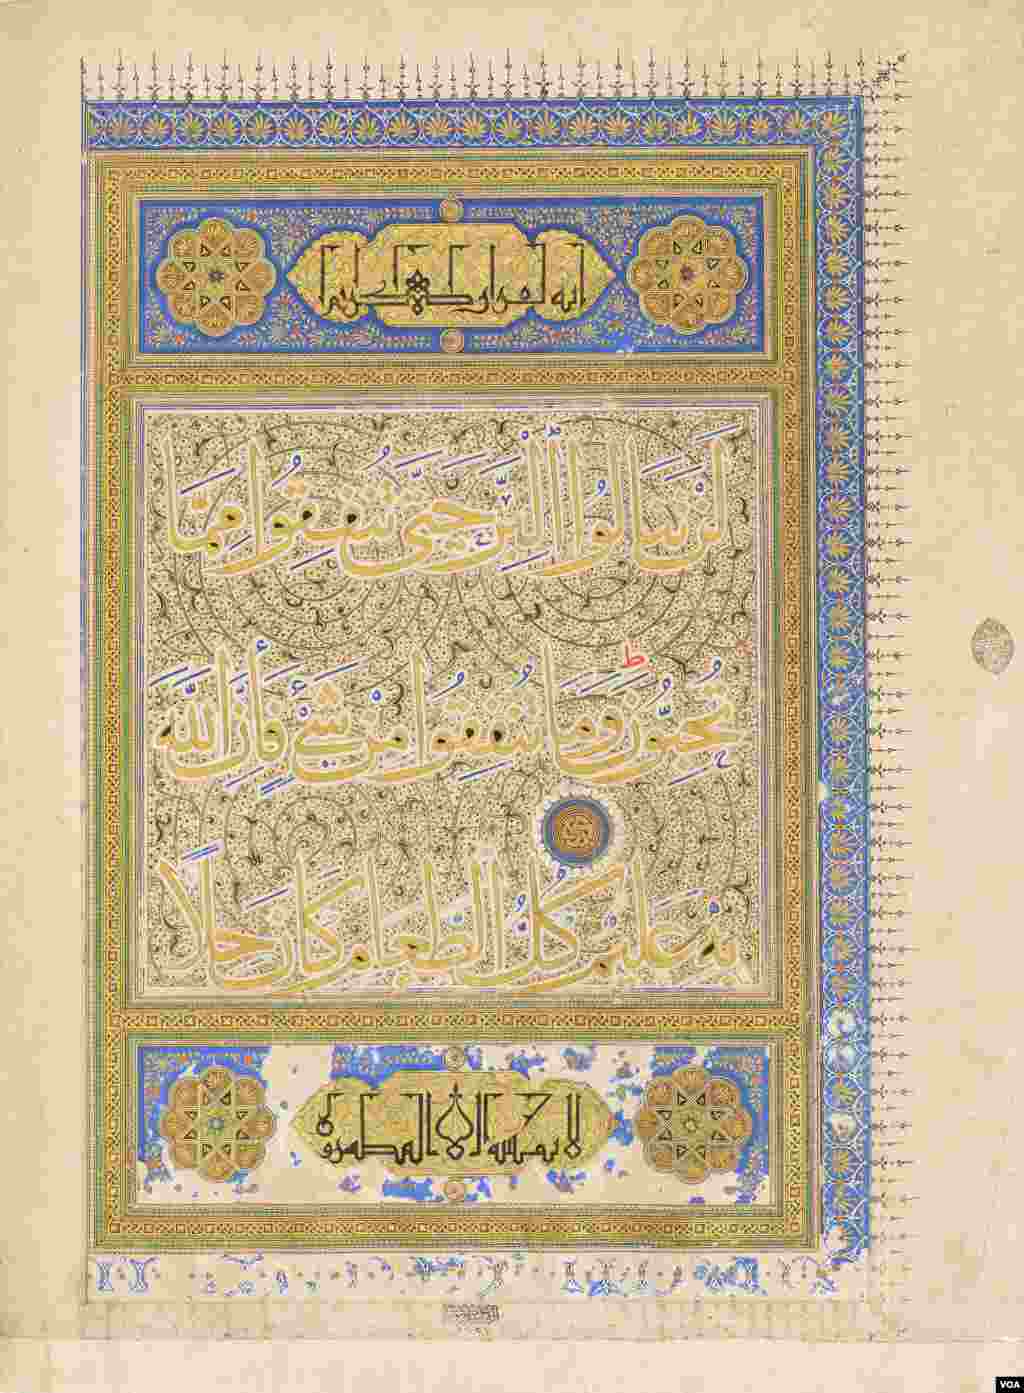 انه لقران كريم
لَنْ تَنَالُوا الْبِرَّ حَتَّى تُنْفِقُوا مِمَّا
تُحِبُّونَ ط وَمَا تُنْفِقُوا مِنْ شَيْءٍ فَإِنَّ اللَّهَ
بِهِ عَلِيمٌ كُلُّ الطَّعَامِ كَانَ حِلًّا
لا يمسه الا المطهرون
VOA